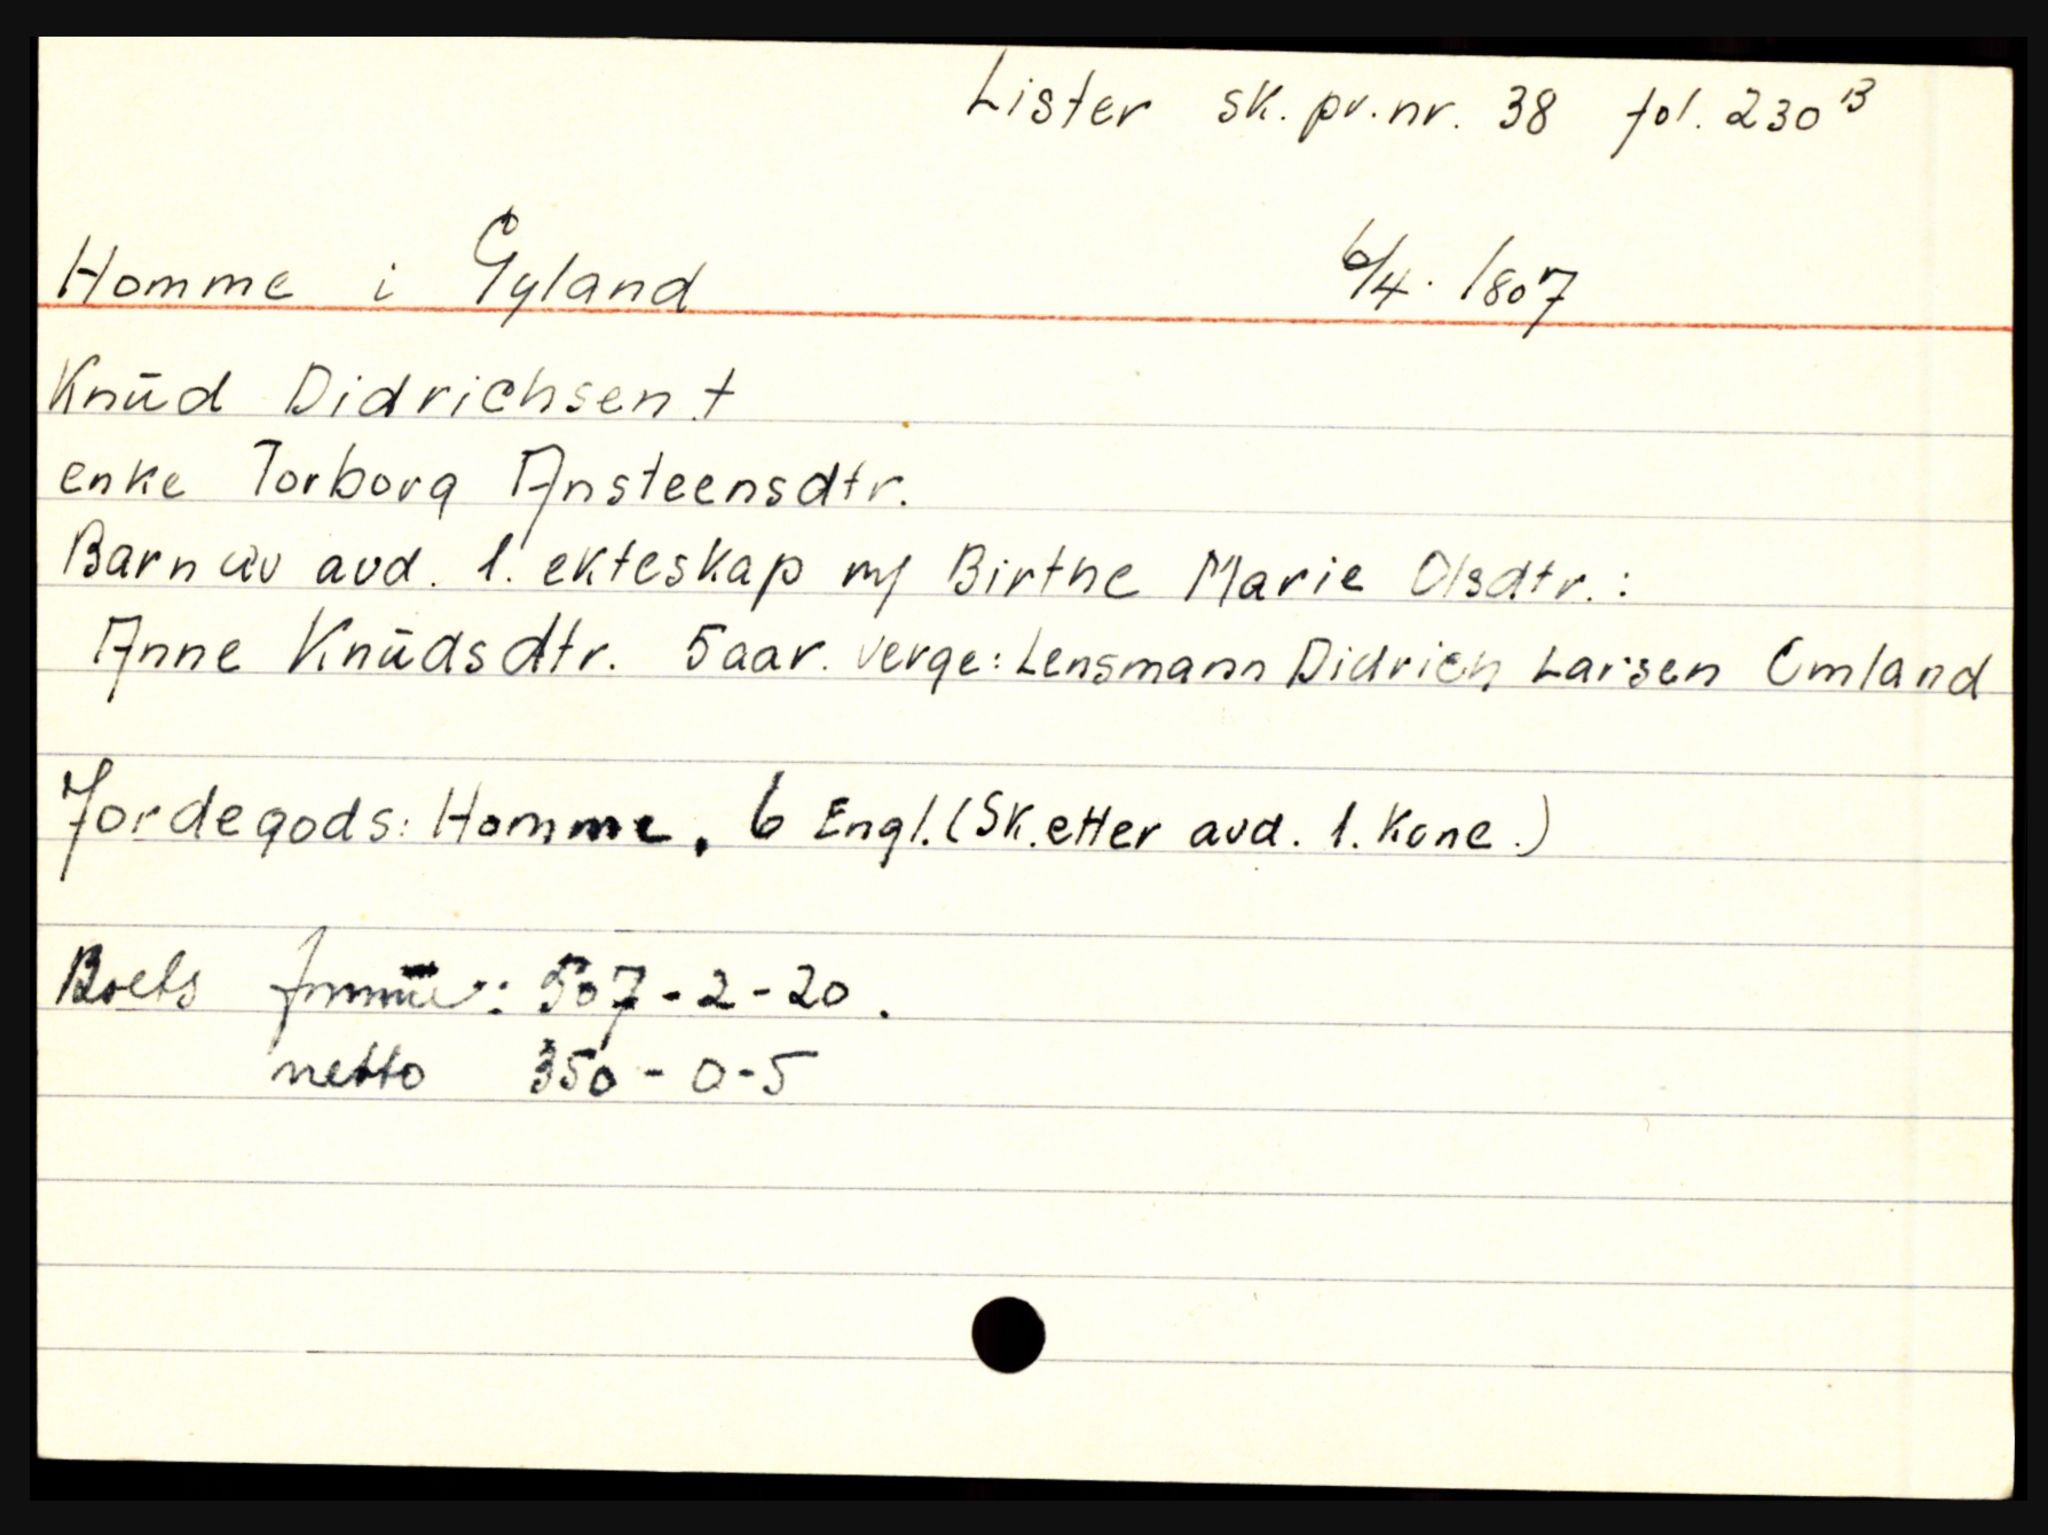 Lister sk. pr. nr. 38 fol. 230 B
Homme i Gyland 6/4. 1807
Knūd Didrichsen †
enke Torborg Ansteensdtr.
Barn av avd. 1. ekteskap m/ Birthe Marie Olsdtr.:
Anne Knūdsdtr. 5 aar. verge: Lensmann Didrich Larsen Omland
Jordegods: Homme, 6 Engl. (Sk. etter avd. 1. Kone.)
Boets : 507-2-20.
netto 350-0-5